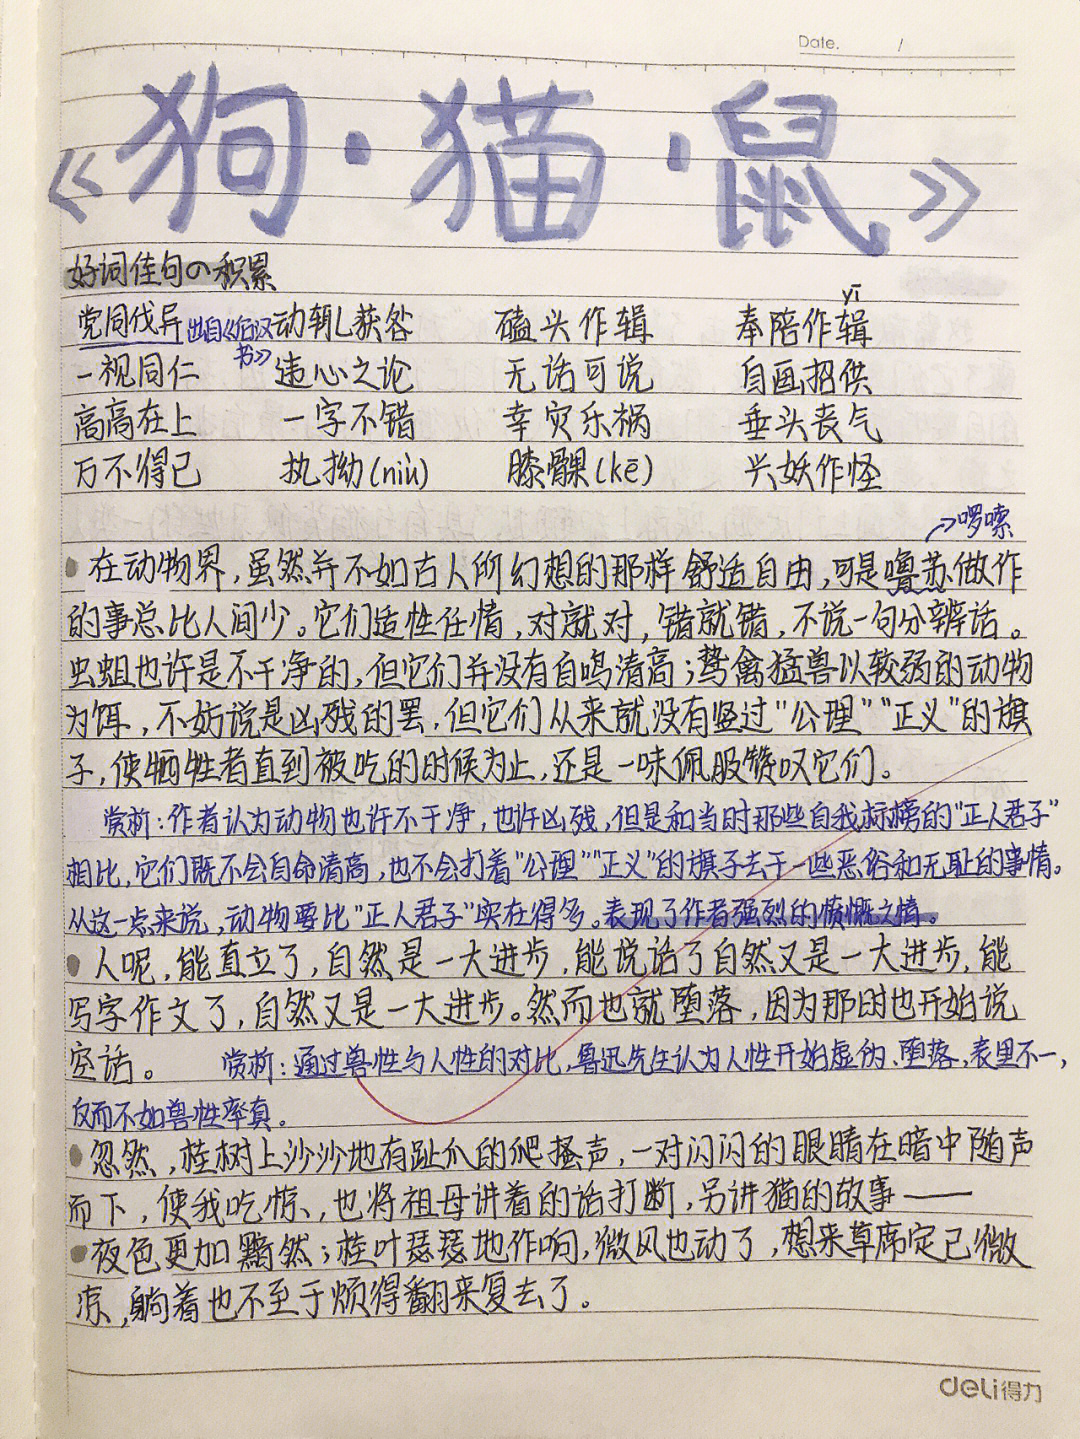 Date. /
《狗·猫·鼠》
好词佳句の积累
党同伐异 出自《后汉书》 动辄获咎 磕头作辑 奉陪作辑 yī
一视同仁 违心之论 无话可说 自画招供
高高在上 一字不错 幸灾乐祸 垂头丧气
万不得已 执拗(niù) 膝髁(kē) 兴妖作怪
→啰嗦
在动物界,虽然并不如古人所幻想的那样舒适自由,可是噜苏做作
的事总比人间少。它们适性任情,对就对,错就错,不说一句分辨话。
虫蛆也许是不干净的,但它们并没有自鸣清高;鸷禽猛兽以较弱的动物
为饵,不妨说是凶残的罢,但它们从来就没有竖过"公理""正义"的旗
子,使牺牲者直到被吃的时候为止,还是一味佩服赞叹它们。
赏析:作者认为动物也许不干净,也许凶残,但是和当时那些自我标榜的"正人君子"
相比,它们既不会自命清高,也不会打着"公理""正义"的旗子去干一些恶俗和无耻的事情。
从这一点来说,动物要比"正人君子"实在得多。表现了作者强烈的愤慨之情。
人呢,能直立了,自然是一大进步,能说话了自然又是一大进步,能
写字作文了,自然又是一大进步。然而也就堕落,因为那时也开始说
空话。 赏析:通过兽性与人性的对比,鲁迅先生认为人性开始虚伪、堕落,表里不一,
反而不如兽性率真。
忽然,桂树上沙沙地有趾爪的爬搔声,一对闪闪的眼睛在暗中随声
而下,使我吃惊,也将祖母讲着的话打断,另讲猫的故事——
夜色更加黯然;桂叶瑟瑟地作响,微风也动了,想来草席定已微
凉,躺着也不至于烦得翻来复去了。
deli得力